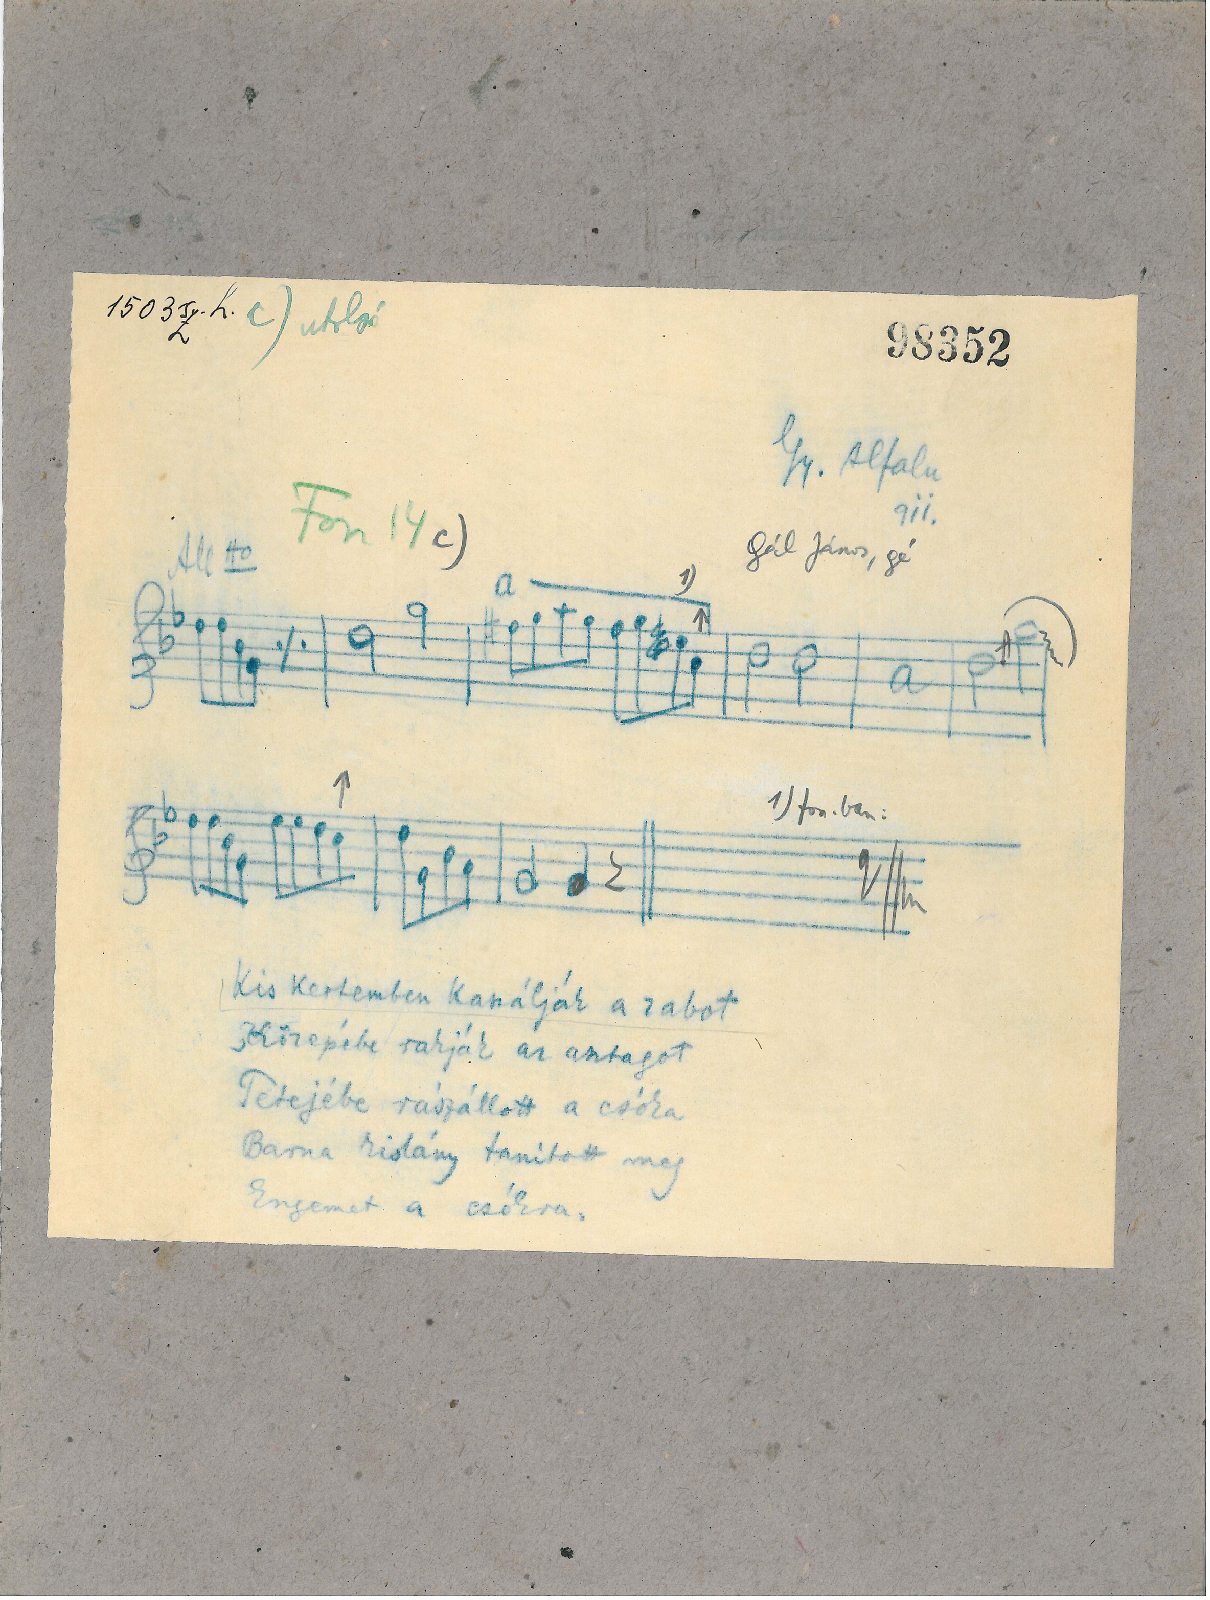 1503 c) utolsó
98352
Gy. Alfalu
911.
Fon 14 c)
Gál János, gé
All tto
a
1)
a
1) fon.ban:
Kis kertemben kapálják a zabot
Közepébe rakják az asztagot
Tetejébe rászállott a csóka
Barna kislány tanított meg
Engemet a csókra.